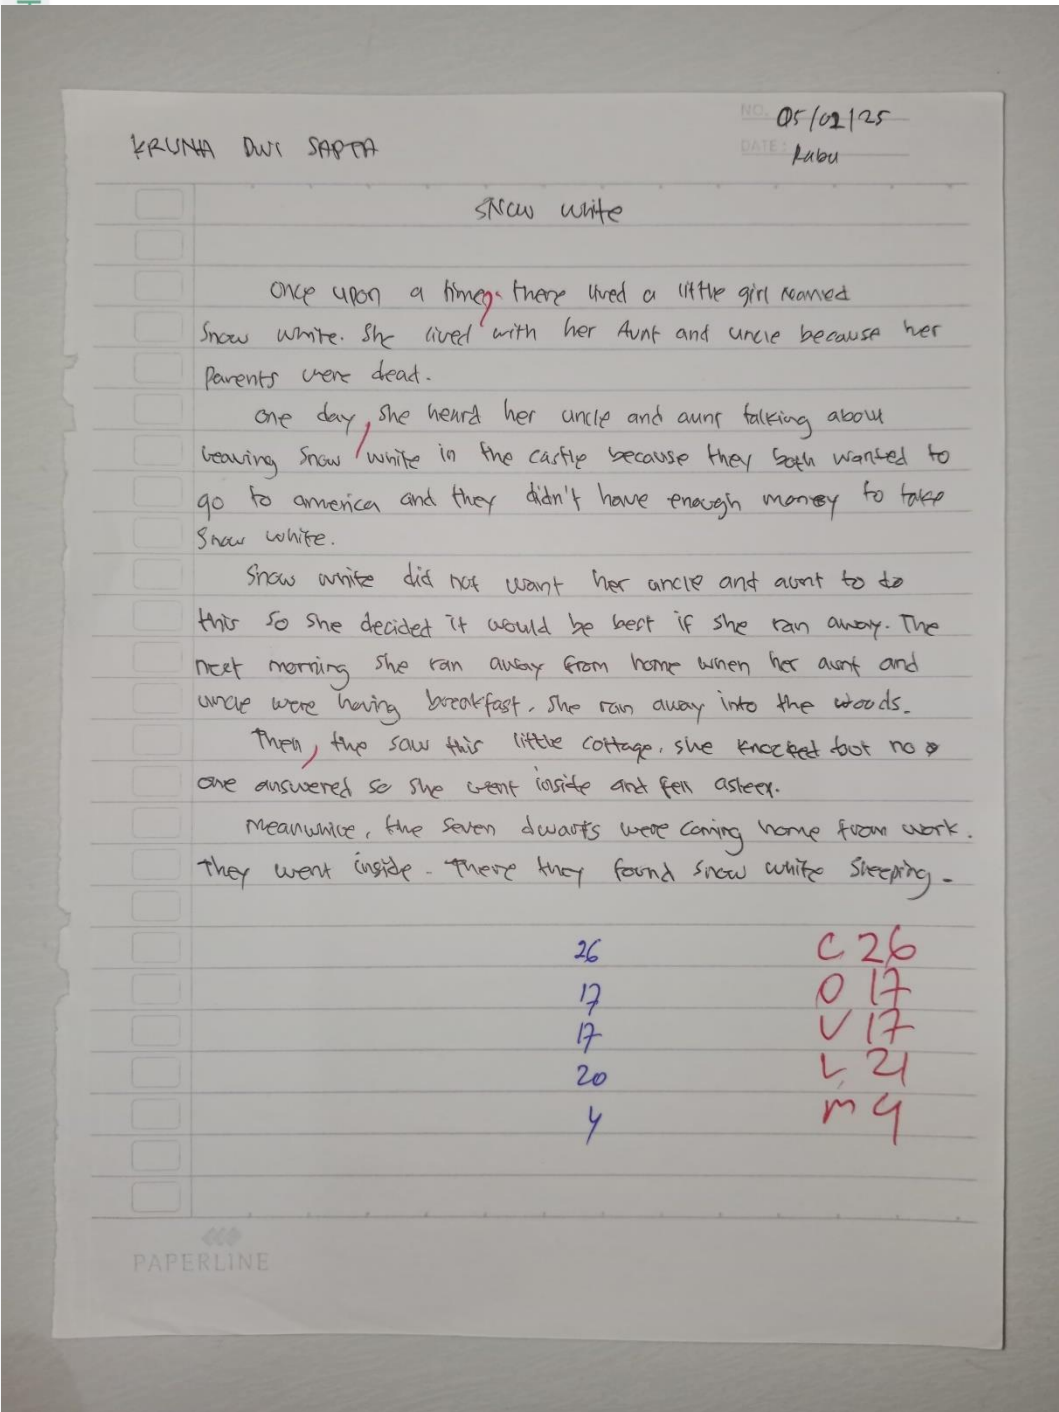 NO. 05/02/25
KRUNA DWI SAPTA
DATE: Rabu
Snow white
Once upon a time, there lived a little girl named
Snow White. She lived with her Aunt and uncle because her
parents were dead.
One day, she heard her uncle and aunt talking about
leaving Snow white in the castle because they both wanted to
go to america and they didn't have enough money to take
Snow white.
Snow white did not want her uncle and aunt to do
this so she decided it would be best if she ran away. The
next morning she ran away from home when her aunt and
uncle were having breakfast. she ran away into the woods.
Then, the saw this little cottage. she knocked but no
one answered so she went inside and fell asleep.
Meanwhile, the seven dwarfs were coming home from work.
They went inside. There they found snow white sleeping.
26 C 26
17 O 17
17 V 17
20 L 21
4 m 4
PAPERLINE